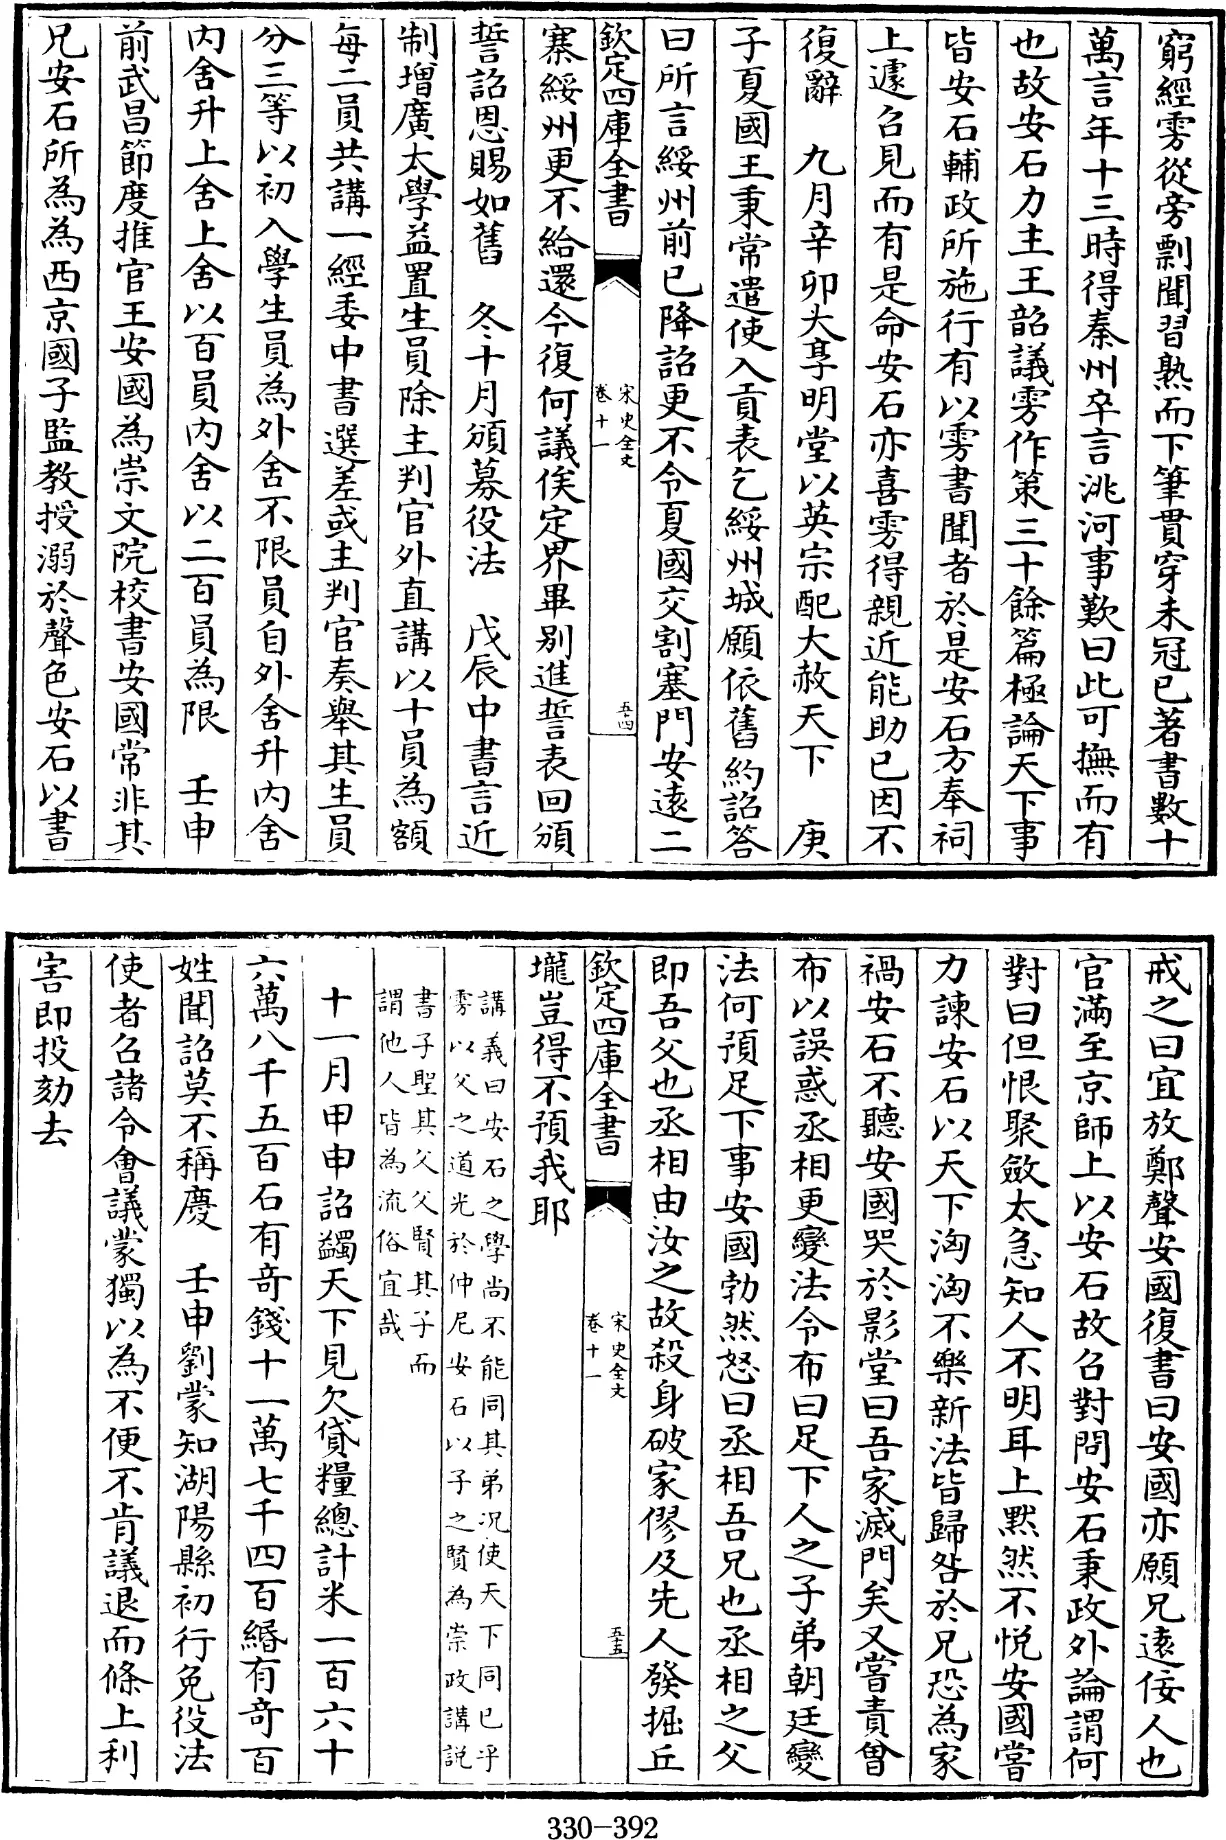 窮經雱從旁剽聞習熟而下筆貫穿未冠已著書數十
萬言年十三時得秦州卒言洮河事歎曰此可撫而有
也故安石力主王韶議雱作策三十餘篇極論天下事
皆安石輔政所施行有以雱書聞者於是安石方奉祠
上遽召見而有是命安石亦喜雱得親近能助已因不
復辭　九月辛卯大享明堂以英宗配大赦天下　庚
子夏國王秉常遣使入貢表乞綏州城願依舊約詔答
曰所言綏州前已降詔更不令夏國交割塞門安遠二
欽定四庫全書
宋史全文
卷十一
五四
寨綏州更不給還今復何議俟定界畢别進誓表回頒
誓詔恩賜如舊　冬十月頒募役法　戊辰中書言近
制增廣太學益置生員除主判官外直講以十員為額
每二員共講一經委中書選差或主判官奏舉其生員
分三等以初入學生員為外舍不限員自外舍升内舍
内舍升上舍上舍以百員内舍以二百員為限　壬申
前武昌節度推官王安國為崇文院校書安國常非其
兄安石所為為西京國子監教授溺於聲色安石以書
戒之曰宜放鄭聲安國復書曰安國亦願兄遠佞人也
官滿至京師上以安石故召對問安石秉政外論謂何
對曰但恨聚斂太急知人不明耳上黙然不悦安國嘗
力諫安石以天下洶洶不樂新法皆歸咎於兄恐為家
禍安石不聽安國哭於影堂曰吾家滅門矣又嘗責曾
布以誤惑丞相更變法令布曰足下人之子弟朝廷變
法何預足下事安國勃然怒曰丞相吾兄也丞相之父
即吾父也丞相由汝之故殺身破家僇及先人發掘丘
欽定四庫全書
宋史全文
卷十一
五五
壠豈得不預我耶
講義曰安石之學尚不能同其弟況使天下同已乎
雱以父之道光於仲尼安石以子之賢為崇政講説
書子聖其父父賢其子而
謂他人皆為流俗宜哉
十一月甲申詔蠲天下見欠貸糧總計米一百六十
六萬八千五百石有奇錢十一萬七千四百緡有奇百
姓聞詔莫不稱慶　壬申劉蒙知湖陽縣初行免役法
使者召諸令會議蒙獨以為不便不肯議退而條上利
害即投劾去
330-392